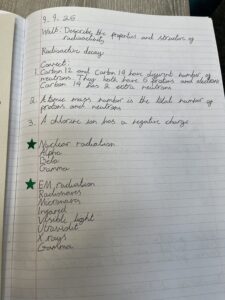 9.9.25
Walt: Describe the properties and structure of
radioactivity
Radioactive decay
Correct:
1. Carbon 12 and Carbon 14 have different number of
neutrons. They both have 6 protons and electrons
Carbon 14 has 2 extra neutrons
2. Atomic mass number is the total number of
protons and neutrons
3. A chlorine ion has a negative charge
Nuclear radiation
Alpha
Beta
Gamma
EM radiation
Radiowaves
Microwaves
Infrared
Visible light
Ultraviolet
X rays
Gamma